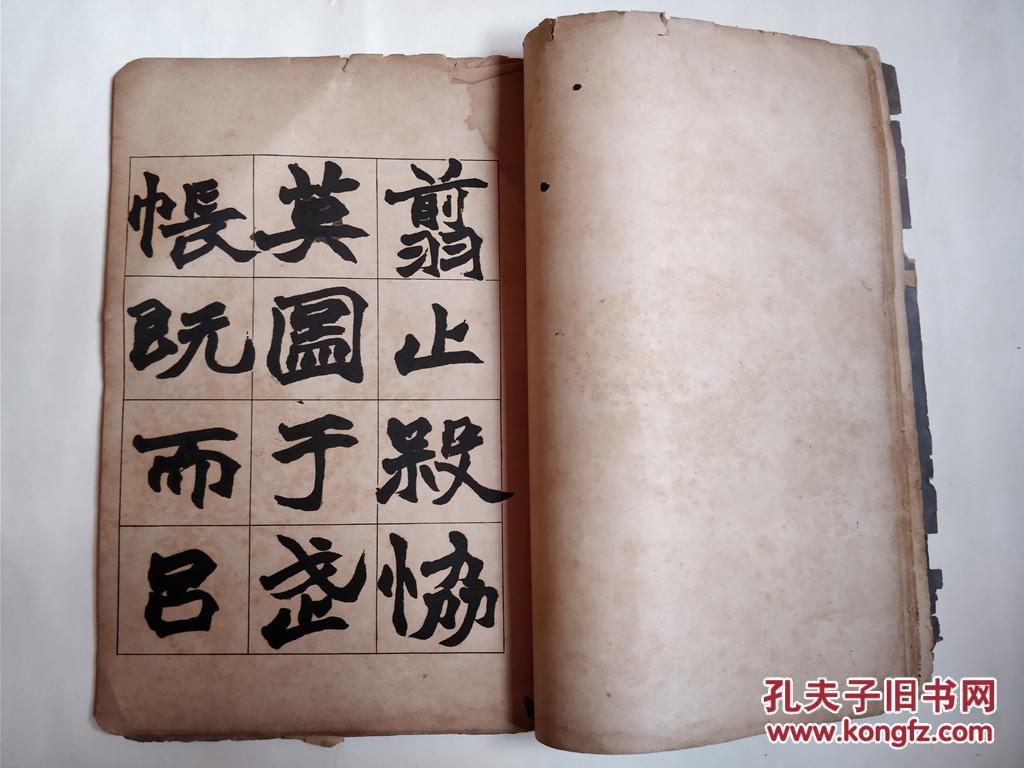 翦止殺恊
英圖于武
帳既而呂
孔夫子旧书网
www.kongfz.com